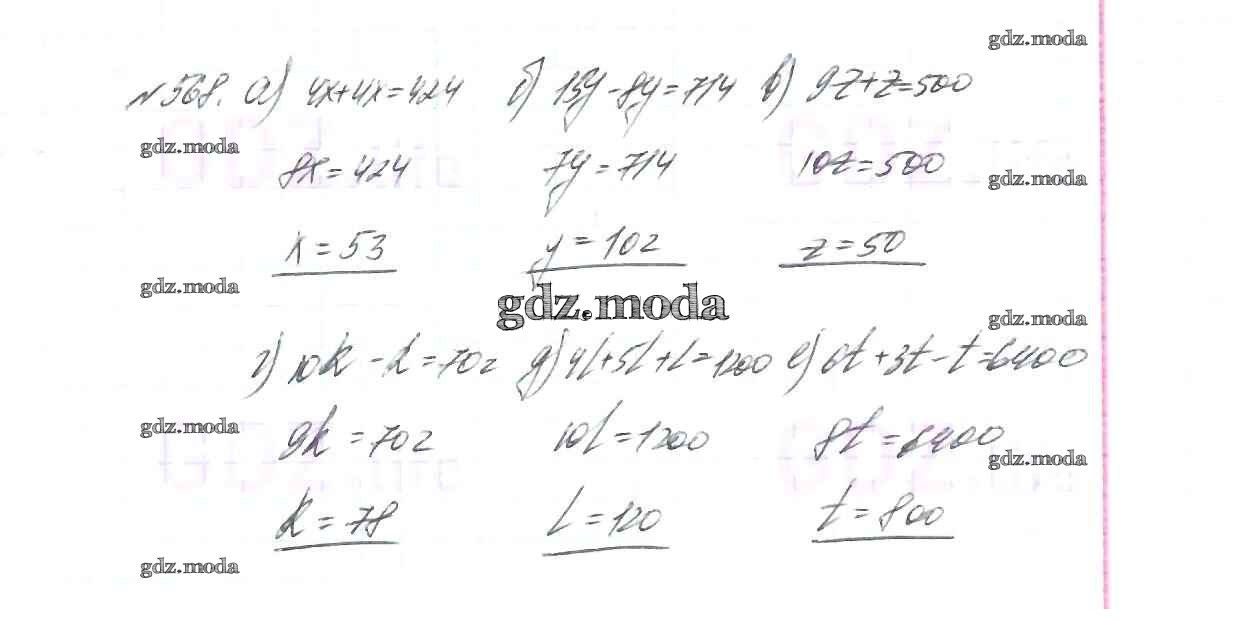 gdz.moda
№568. а) 4x+4x=424 б) 15y-8y=714 в) 9z+z=500
gdz.moda
8x=424 7y=714 10z=500
gdz.moda
x=53 y=102 z=50
gdz.moda
gdz.moda
gdz.moda
г) 10k-k=702 д) 4l+5l+l=1200 е) 6t+3t-t=6400
gdz.moda
9k=702 10l=1200 8t=6400
gdz.moda
k=78 l=120 t=800
gdz.moda